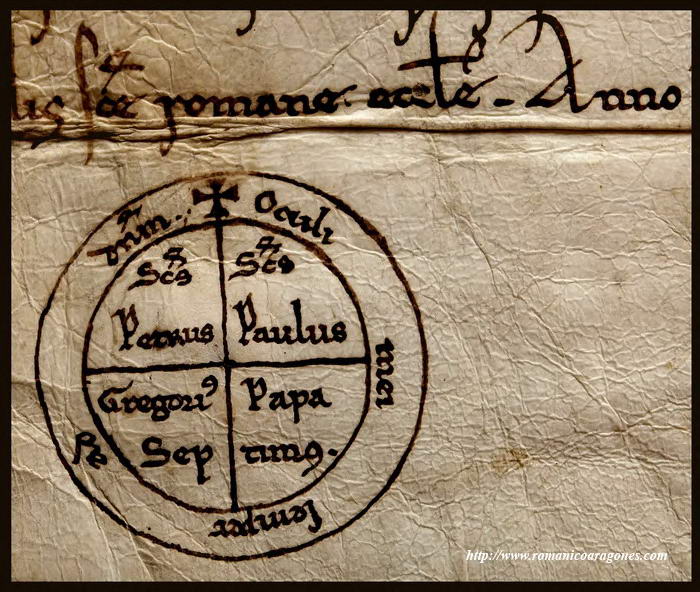 lis sc̄e romane eccl̄e - Anno
✠ Oculi mei semper dn̄m.
Sc̄s Sc̄s
Petrus Paulus
Gregoriꝰ Papa
Sep timꝰ.
http://www.romanicoaragones.com